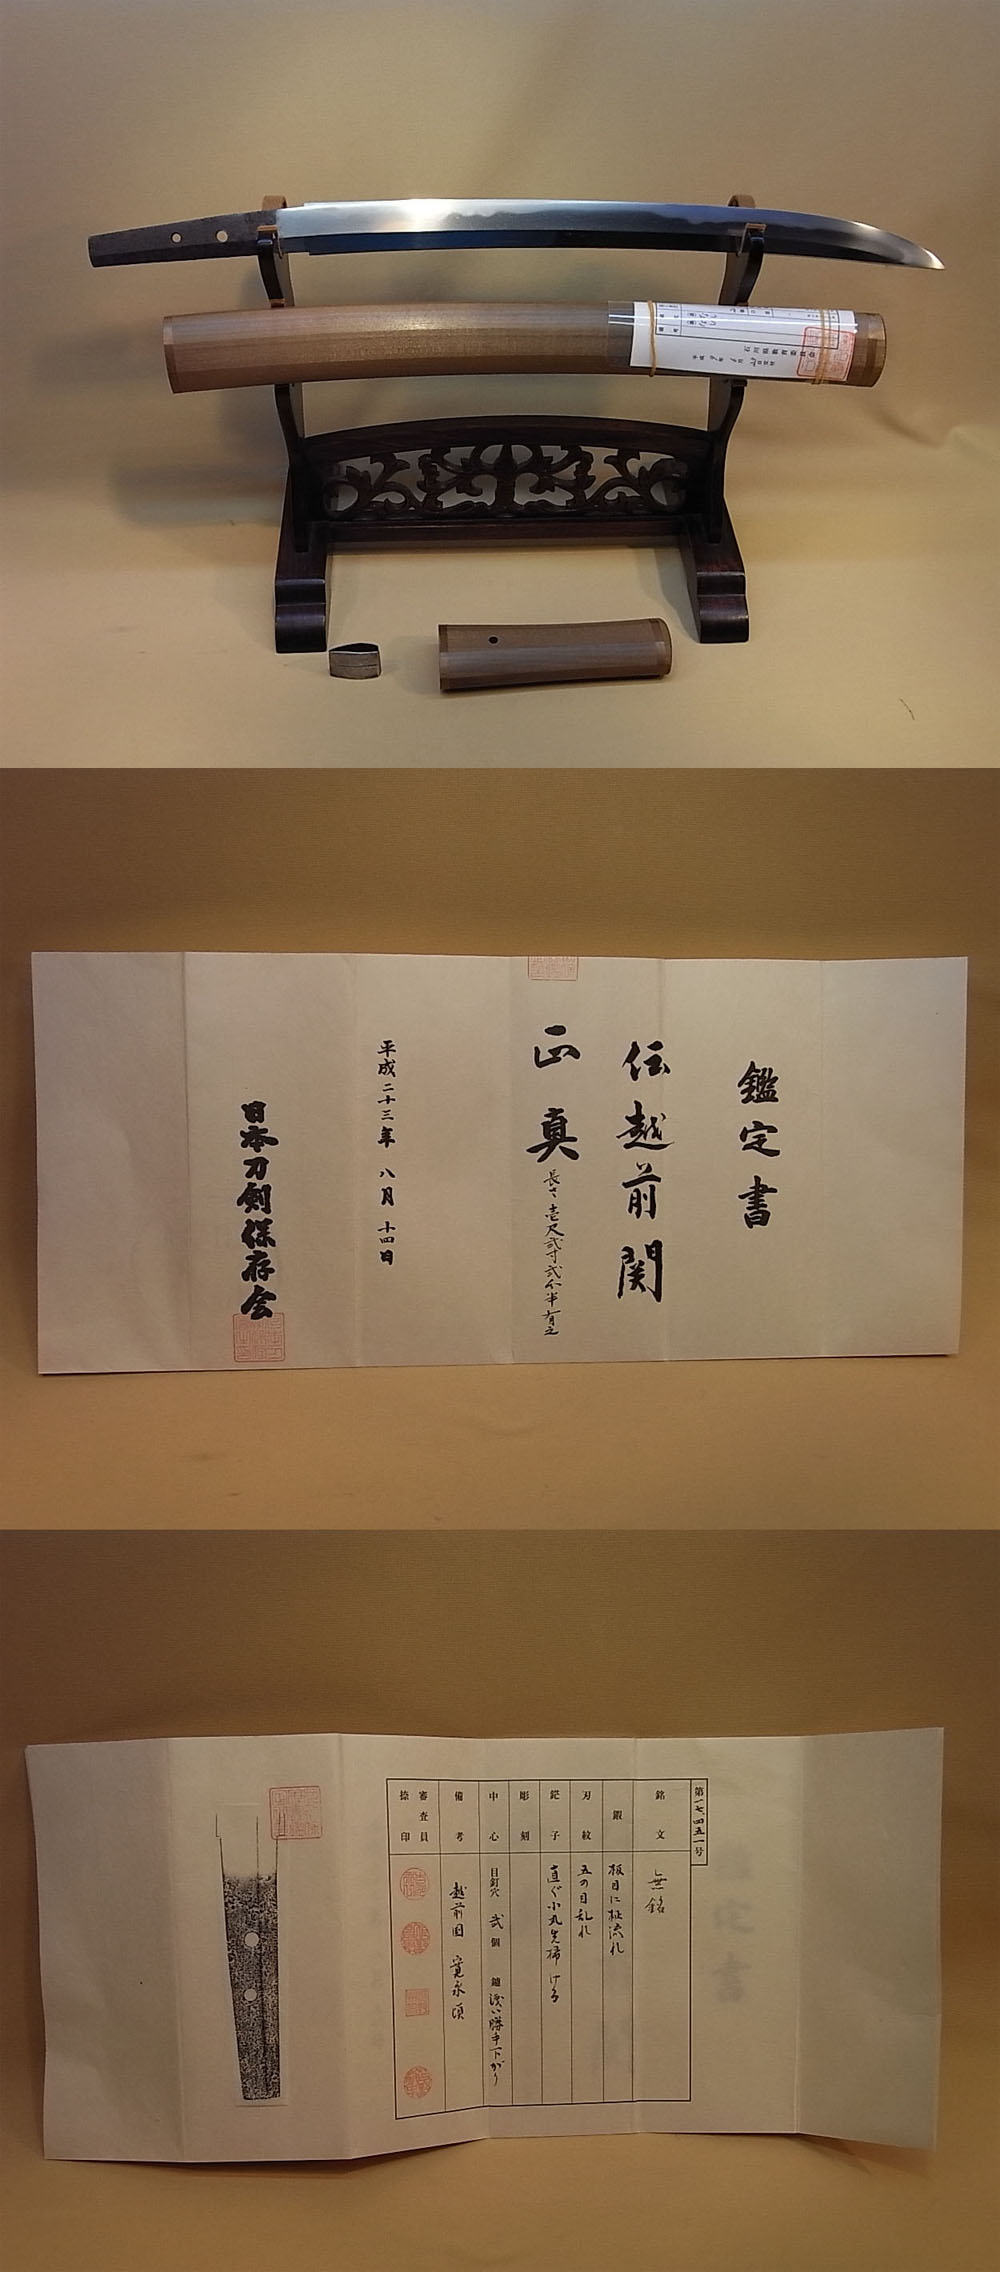 石川県教育委員会
鑑定書
伝越前関
正真 長さ壱尺弐寸弐分半有之
平成二十三年 八月 十四日
日本刀剣保存会
第一七四五一号
銘文 無銘
鍛 板目に柾流れ
刃紋 五の目乱れ
鋩子 直ぐ小丸先掃ける
彫刻
中心 目釘穴 弐個 鑢 浅い勝手下がり
備考 越前国 寛永頃
審査員
捺印